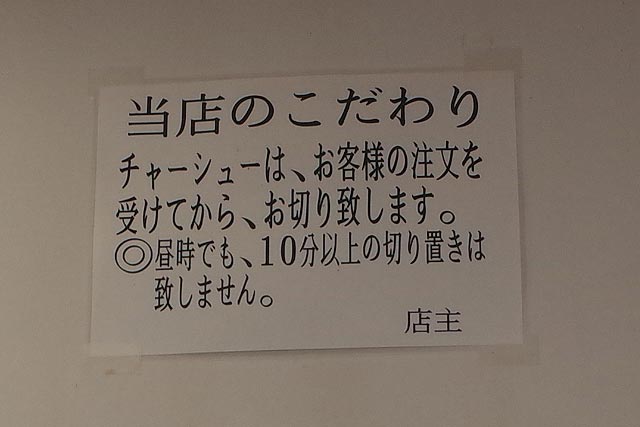 当店のこだわり
チャーシューは、お客様の注文を
受けてから、お切り致します。
◎昼時でも、10分以上の切り置きは
致しません。
店主